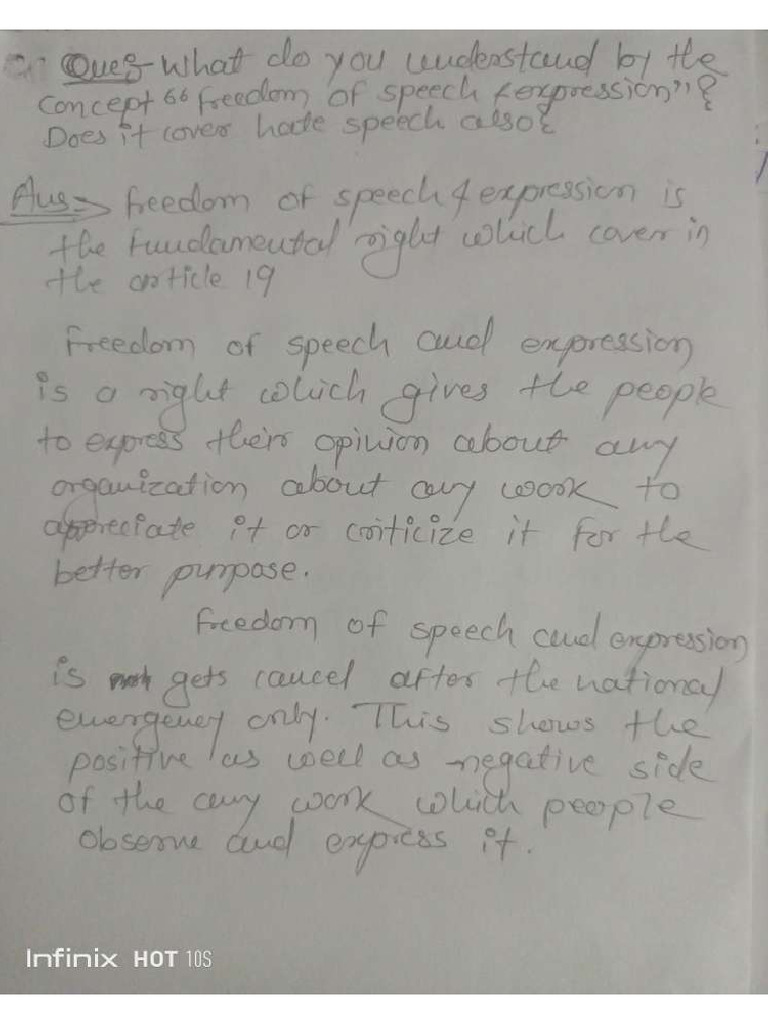 Ques- What do you understand by the
concept "freedom of speech & expression"?
Does it cover hate speech also?
Ans-> freedom of speech & expression is
the fundamental right which cover in
the article 19
freedom of speech and expression
is a right which gives the people
to express their opinion about any
organization about any work to
appreciate it or criticize it for the
better purpose.
freedom of speech and expression
is gets cancel after the national
emergency only. This shows the
positive as well as negative side
of the any work which people
observe and express it.
Infinix HOT 10S